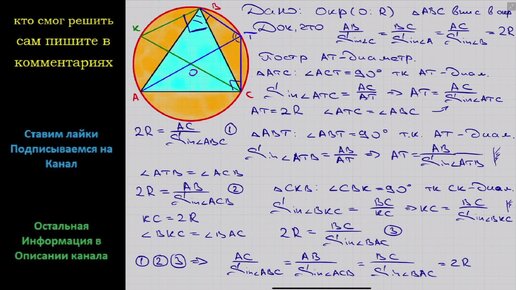 кто смог решить
сам пишите в
комментариях
Ставим лайки
Подписываемся на
Канал
Остальная
Информация в
Описании канала
B
K
T
O
A
C
Дано: Окр(O;R) ΔABC впис в окр
Док, что AB/Sin∠C = BC/Sin∠A = AC/Sin∠B = 2R
Постр AT-диаметр.
ΔATC: ∠ACT=90° тк AT-диам.
Sin∠ATC = AC/AT ⇒ AT = AC/Sin∠ATC
AT=2R ∠ATC=∠ABC
2R = AC/Sin∠ABC ①
ΔABT: ∠ABT=90° т.к. AT-диам.
Sin∠ATB = AB/AT ⇒ AT = AB/Sin∠ATB
∠ATB=∠ACB
2R = AB/Sin∠ACB ②
ΔCKB: ∠CBK=90° тк CK-диам.
Sin∠BKC = BC/KC ⇒ KC = BC/Sin∠BKC
KC=2R
∠BKC=∠BAC
2R = BC/Sin∠BAC ③
①②③ ⇒ AC/Sin∠ABC = AB/Sin∠ACB = BC/Sin∠BAC = 2R